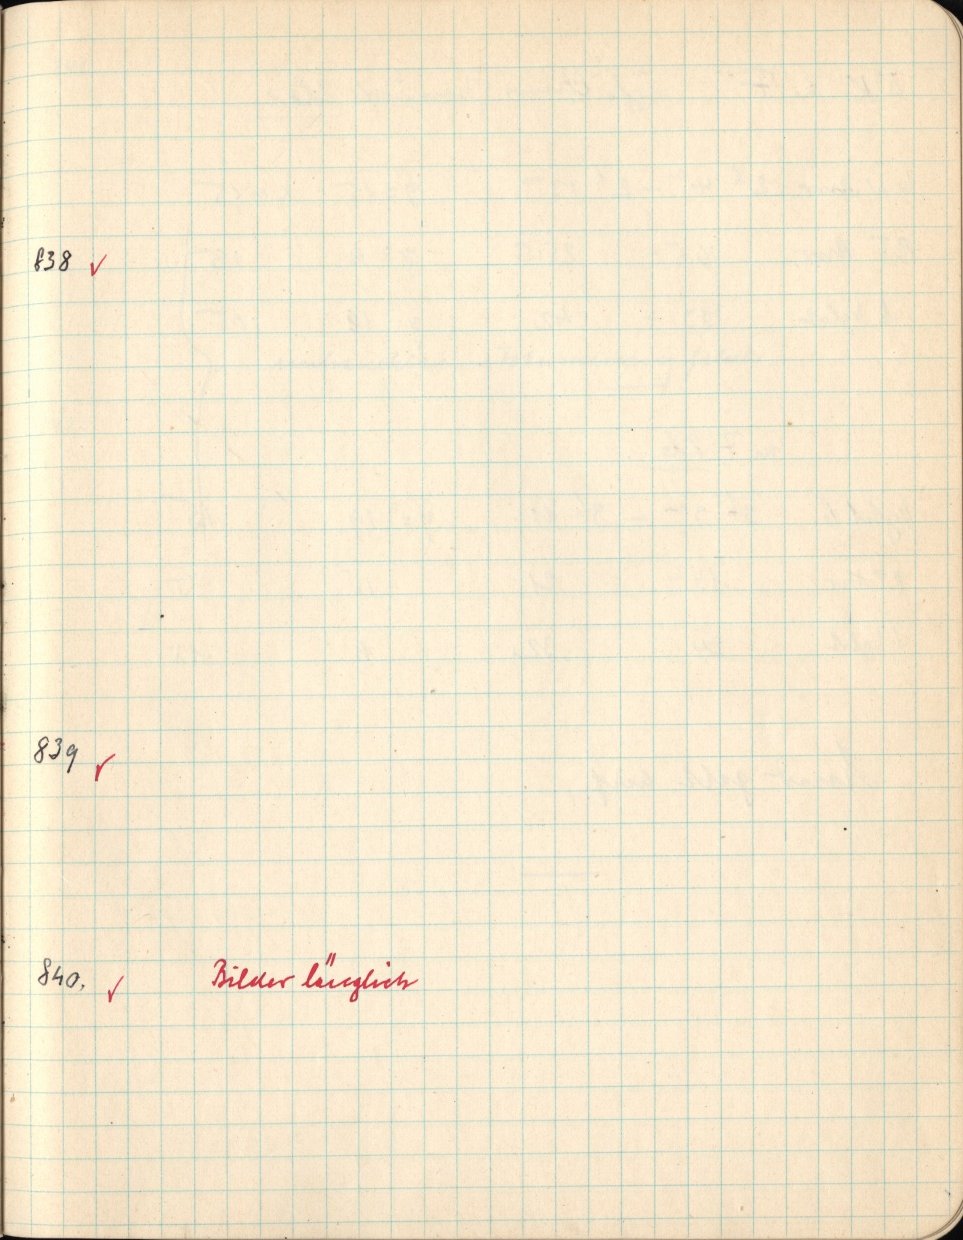 838 ✓
839 ✓
840. ✓ Bilder länglich